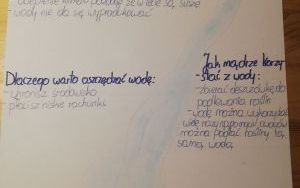 - ocieplenie klimatu powoduje że wiele rzek, susze
- wody nie da się wyprodukować
Dlaczego warto oszczędzać wodę:
- chronisz środowisko
- płacisz niższe rachunki
Jak mądrze korzy-
- stać z wody:
- zbierać deszczówkę do
podlewania roślin
- wodę można wykorzystać
można podlać rośliny tą
samą wodą